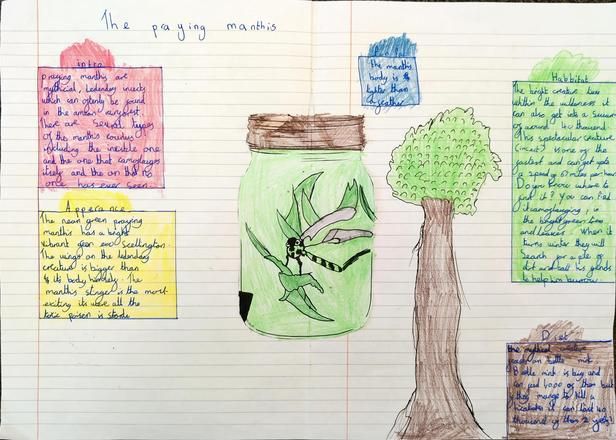 The praying manthis
intro
praying manths are
mythical, Ledendary insects
which can oftenly be found
in the amazon rainforest.
There are several types
of this manths counties
including the invicible one
and the one that camouflages
itself and the on that no
once has ever seen.
Apperance
The neon green praying
manthis has a bright
vibrant green exo scellington.
The wings on the ledendary
creature is bigger than
its body
manth's stinger is the most
exiting its were all the
toxic poison is stored
the manths
body is
lighter than
a feather
Habbitat
The bright creature lives
within the wilderness it
can also get into a swarm
of around 40 thousand
This spectacular creature
(incest) is one of the
fastest and can get up to
a speed of 67 miles per hour
Do you know where to
find it? you can find
it camouflaging in
the bright green trees
and leaves. When it
turns winter they will
search for a pile of
dirt and call his friends
to help him burrow
Diet
the mythical
on
is big and
can eat 4,000 of them but
if they mange to kill a
it can last 40
thousand of them 2 years!